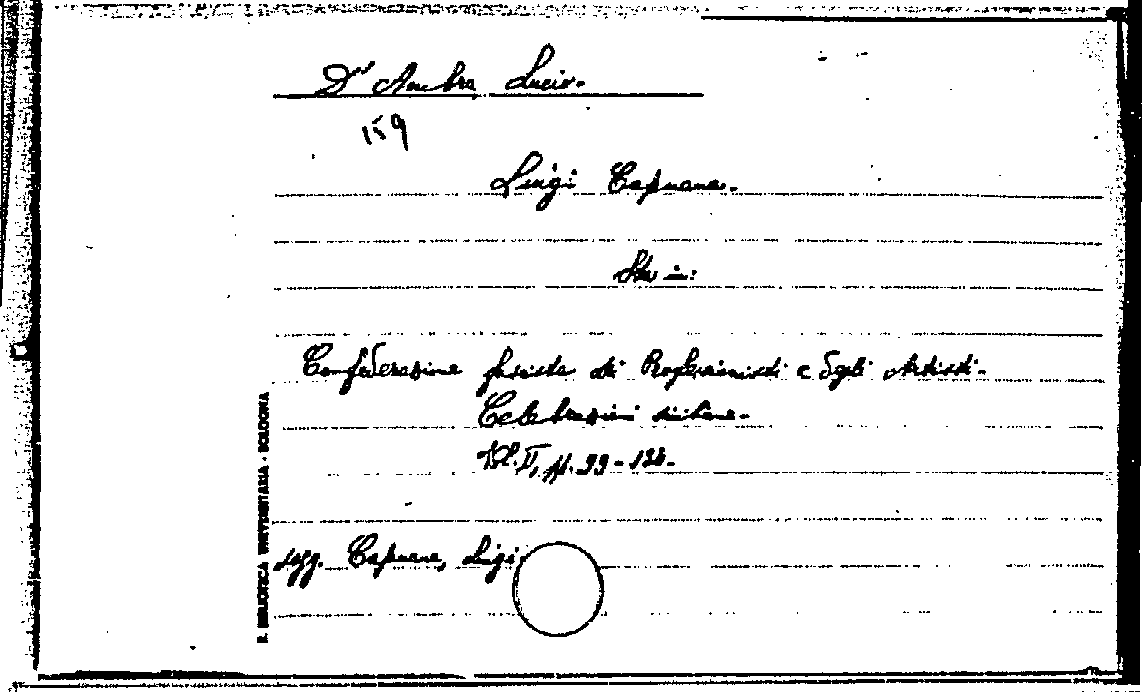 D'Ambra Lucio.
159
Luigi Capuana.
Sta in:
Confederazione fascista dei Professionisti e degli Artisti.
Celebrazioni siciliane.
Vol. II, pp. 99-124.
sogg. Capuana, Luigi.
R. BIBLIOTECA UNIVERSITARIA - BOLOGNA